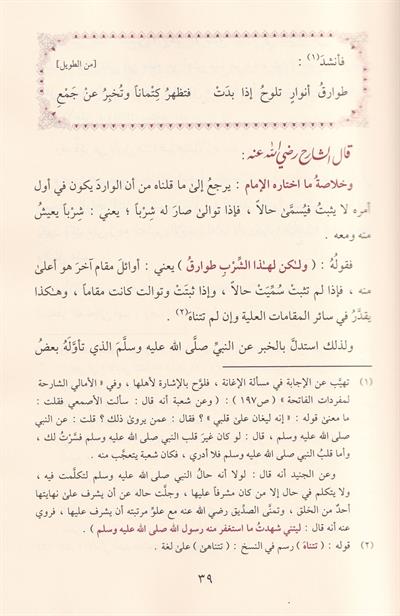 فأنشدَ(١) :
[من الطويل]
طوارقُ أنوارٍ تلوحُ إذا بدَتْ فتظهرُ كِتْماناً وتُخبِرُ عنْ جَمْعِ
قال الشارح رضي الله عنه :
وخلاصةُ ما اختاره الإمام : يرجعُ إلىٰ ما قلناه من أن الوارد يكون في أول
أمره لا يثبتُ فيُسمَّىٰ حالاً ، فإذا توالىٰ صارَ له شِرْباً ؛ يعني : شِرْباً يعيشُ
منه ومعه .
فقولُهُ : ( ولكن لهٰذا الشِّرْبِ طوارقُ ) يعني : أوائلَ مقام آخرَ هو أعلىٰ
منه ، فإذا لم تثبتْ سُمِّيَتْ حالاً ، وإذا ثبتَتْ وتوالت كانت مقاماً ، وهٰكذا
يقدَّرُ في سائر المقامات العلية وإن لم تتناهَ(٢) .
ولذلك استدلَّ بالخبر عن النبيِّ صلَّى الله عليه وسلَّمَ الذي تأوَّلَهُ بعضُ
(١) تهيَّب عن الإجابة في مسألة الإغانة ، فلوَّح بالإشارة لأهلها ، وفي « الأمالي الشارحة
لمفردات الفاتحة » ( ص١٩٧ ) : ( وعن شعبة أنه قال : سألت الأصمعي فقلت :
ما معنىٰ قوله : « إنه ليغان علىٰ قلبي » ؟ فقال : عمن يروىٰ ذلك ؟ قلت : عن النبي
صلى الله عليه وسلم ، قال : لو كان غيرَ قلب النبي صلى الله عليه وسلم فسَّرْتُ لك ،
وأما قلبُ النبي صلى الله عليه وسلم فلا أدري ، فكان شعبة يتعجَّب منه .
وعن الجنيد أنه قال : لولا أنه حالُ النبي صلى الله عليه وسلم لتكلَّمت فيه ،
ولا يتكلم في حال إلا من كان مشرفاً عليها ، وجلَّت حاله عن أن يشرف علىٰ نهايتها
أحدٌ من الخلق ، وتمنَّى الصدِّيق رضي الله عنه مع علوِّ مرتبته أن يشرف عليها ، فروي
عنه أنه قال : ليتني شهدتُ ما استغفر منه رسول الله صلى الله عليه وسلم ) .
(٢) قوله : ( تتناهَ ) رسم في النسخ : ( تتناهىٰ ) علىٰ لغة .
٣٩